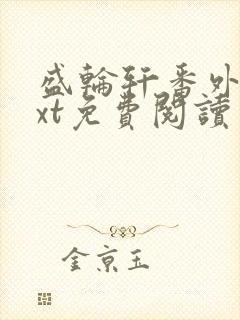 盛輪軒番外
xt免費閱讀
金京玉